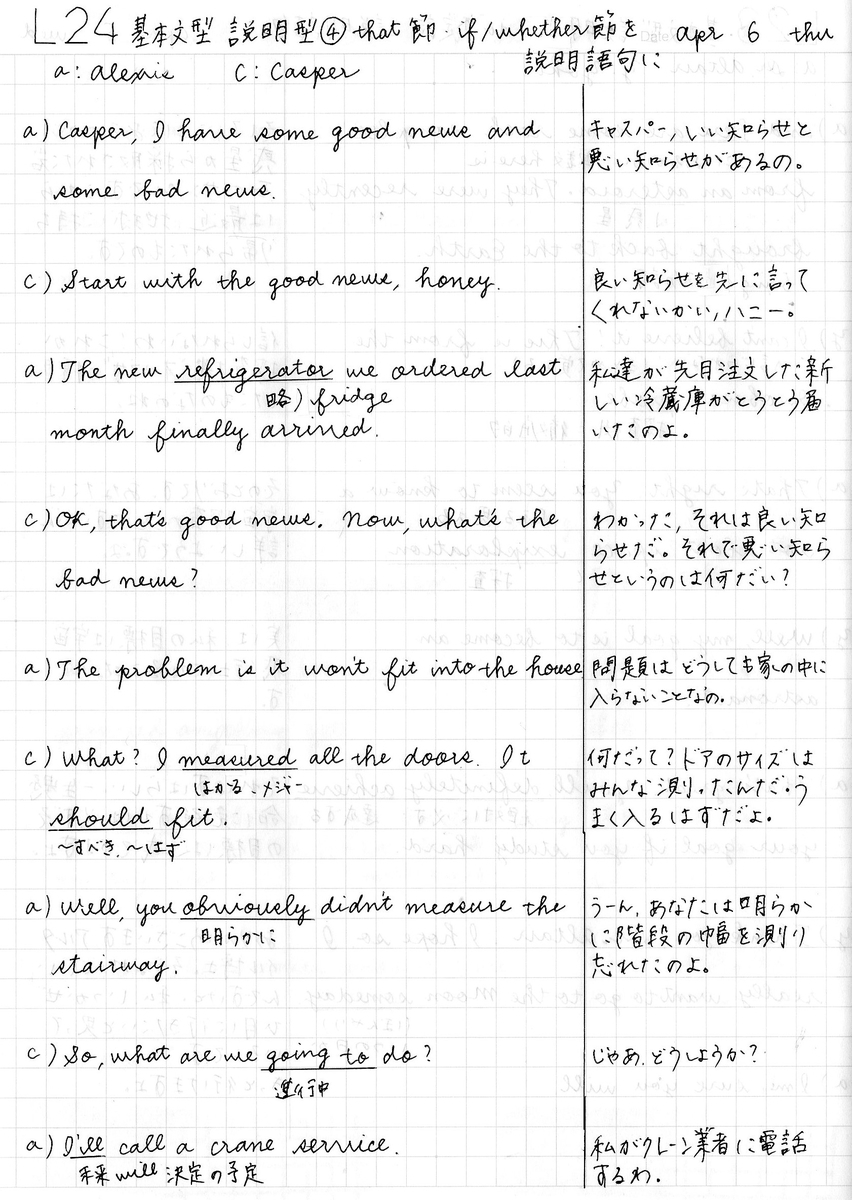 L24 基本文型 説明型④ that節・if/whether節を apr 6 thu
説明語句に
a: alexis C: Casper
a) Casper, I have some good news and キャスパー, いい知らせと
悪い知らせがあるの。
some bad news.
c) Start with the good news, honey. 良い知らせを先に言って
くれないかい, ハニー。
a) The new refrigerator we ordered last 私達が先月注文した新
略) fridge しい冷蔵庫がとうとう届
month finally arrived. いたのよ。
c) OK, that's good news. Now, what's the わかった, それは良い知
らせだ。それで悪い知ら
bad news? せというのは何だい?
a) The problem is it won't fit into the house 問題はどうしても家の中に
入らないことなの.
c) What? I measured all the doors. It 何だって?ドアのサイズは
はかる:メジャー みんな測ったんだ。う
should fit. まく入るはずだよ.
〜すべき.〜はず
a) Well, you obviously didn't measure the うーん, あなたは明らか
明らかに に階段の幅を測り
stairway. 忘れたのよ。
c) So, what are we going to do? じゃあ. どうしようか?
進行中
a) I'll call a crane service. 私がクレーン業者に電話
未来will 決定の予定 するわ.